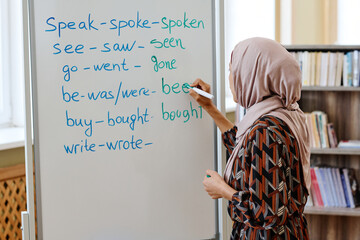 Speak-spoke-spoken
see-saw-seen
go-went-gone
be-was/were-bee
buy-bought-bought
write-wrote-